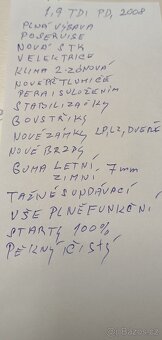 1,9 TDI PD, 2008
PLNÁ VÝBAVA
POSERVISE
NOVÁ STK
V ELEKTRICE
KLIMA 2-ZÓNOVÁ
NOVÉ PŘ TLUMIČE
PERA I SULOŽENÍM
STABILIZAČKY
ČOUSTŘIKY
NOVÉ ZÁMKY LP, LZ, DVEŘE
NOVÉ BRZDY
GUMA LETNÍ, 7mm
ZIMNÍ
TAŽNÉ SUNDAVACÍ
VŠE PLNĚ FUNKČNÍ
STARTY 100%
PĚKNÝ I ČISTÝ
bazos.cz